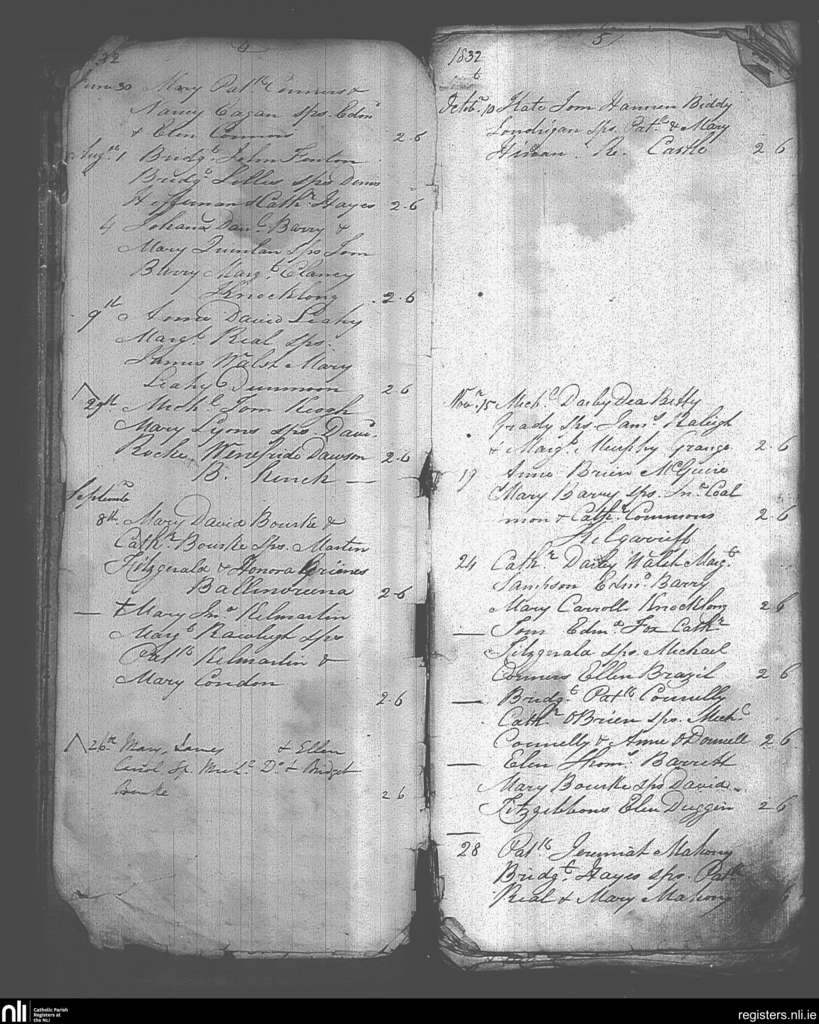 4
32
June 30 Mary Patk Connors &
Nancy Eagan sps. Edmd
& Elen Connors 2-6
Augst 1 Bridgt John Fenton
Bridgt Lillis sps Denis
Heffernan & Cathn Hayes 2-6
4 Johana Danl Barry &
Mary Quinlan sps Tom
Barry Margt Clancy
Knocklong 2-6
9th Anne David Leahy
Margt Real sps.
James Walsh Mary
Leahy Dunmoon 2 6
29th Michl Tom Keogh
Mary Lyons sps Davd
Roche Wenefride Dawson 2-6
B. Rinck
Septembr
8th Mary David Bourke &
Cathn Bourke sps. Martin
Fitzgerald & Honora Briens
Ballinvreena 2-6
Mary Jno Kilmartin
Mary Rawleigh sps
Patk Kilmartin &
Mary Condon
2-6
26th Mary James & Ellen
Carrol Sp Michl Do & Bridget
Burke 2 6
5
1832
6
Octobr 10 Kate Tom Hannen Biddy
Londrigan sps. Patk & Mary
Hinan. Castle 2-6
Novr 15 Michl Darby Dea Betty
Grady Sps Jams Raleigh
& Margt Murphy Grange 2-6
19 Anne Brien McGuire
Mary Barry sps. Jno Coal
mon & Cathn Commons 2 6
24 Cathn Darby Walsh Margt
Sampson Edmd Barry
Mary Carroll Knocklong 2 6
Tom Edmd Fox Cathn
Fitzgerald sps Michael
Connors Ellen Brazil 2 6
Bridgt Patk Connelly
Cathn OBrien sps. Michl
Connelly & Anne O Donnell 2 6
Elen Thoms Barrett
Mary Bourke sps David
Fitzgibbons Elen Duggin 2 6
28 Patk Jeremiah Mahony
Bridgt Hayes sps. Patk
Real & Mary Mahony 6
nli Catholic Parish
Registers at
the NLI
registers.nli.ie